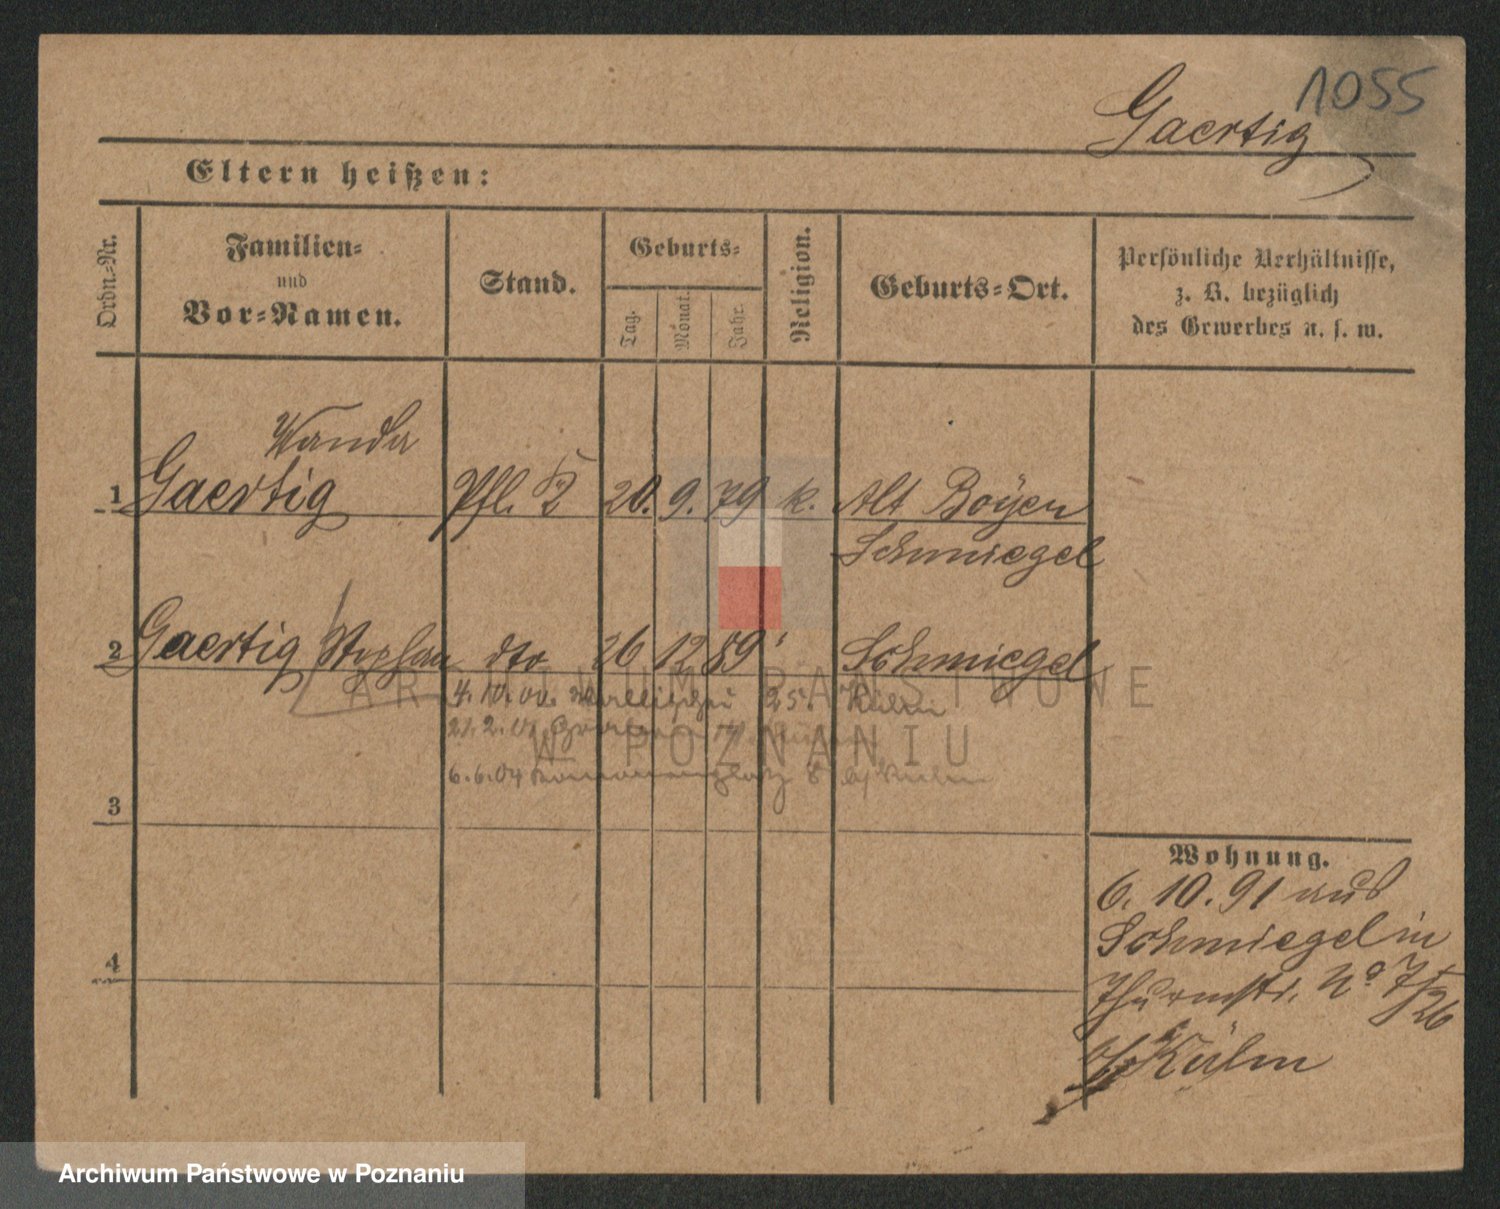 1055
Gaertig
Eltern heißen:
Ordn.-Nr.
Familien-
und
Vor-Namen.
Stand.
Geburts-
Tag.
Monat.
Jahr.
Religion.
Geburts-Ort.
Persönliche Verhältnisse,
z. B. bezüglich
des Gewerbes u. s. w.
Wanda
1 Gaertig Pfl. T 20. 9. 79 k. Alt Boÿen
Schmiegel
2 Gaertig Stephan dto 26 12 89 " Schmiegel
4. 10. 00. Wallischei 25. Külm
21. 2. 01
6. 6. 04 8 b/ Külm
3
4
Wohnung.
6. 10. 91 aus
Schmiegel in
Thurmstr. No 7/26
b/ Külm
ARCHIWUM PAŃSTWOWE
W POZNANIU
Archiwum Państwowe w Poznaniu